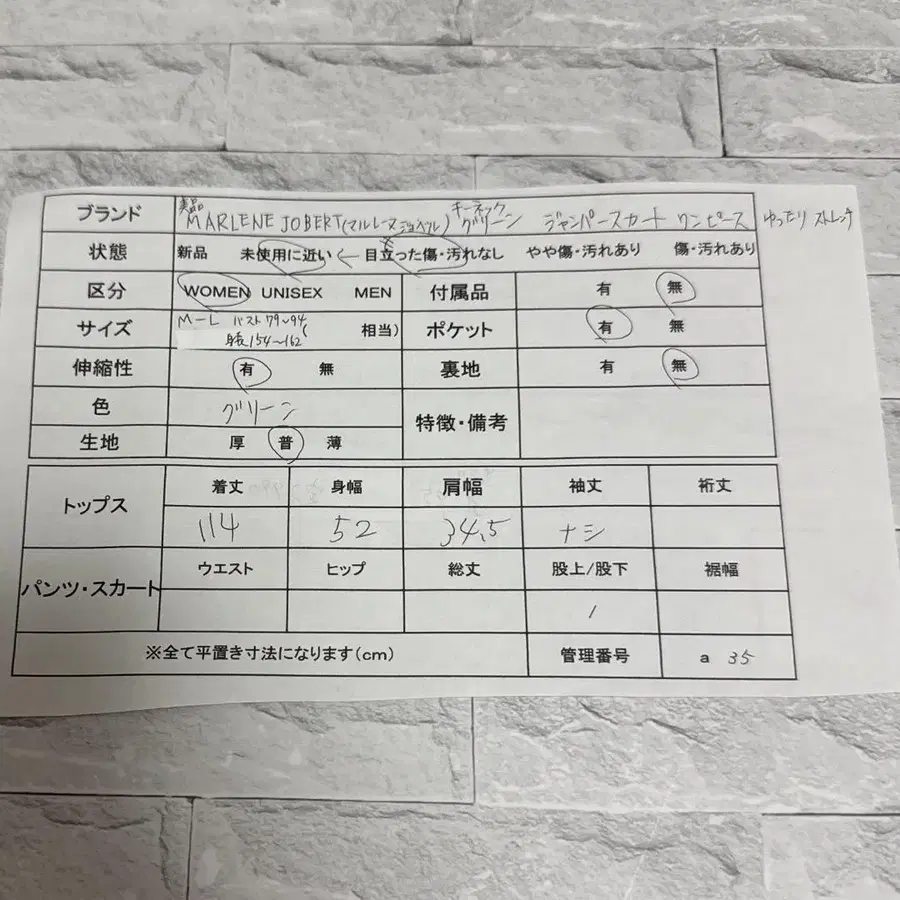 ブランド 美品 MARLENE JOBERT(マルレーヌジョベル) キーネック グリーン ジャンパースカート ワンピース ゆったり ストレッチ
状態 新品 未使用に近い ← 目立った傷・汚れなし やや傷・汚れあり 傷・汚れあり
区分 WOMEN UNISEX MEN 付属品 有 無
サイズ M-L バスト79~94 身長154~162 ( 相当) ポケット 有 無
伸縮性 有 無 裏地 有 無
色 グリーン 特徴・備考
生地 厚 普 薄
トップス 着丈 身幅 肩幅 袖丈 裄丈
114 52 34.5 ナシ
パンツ・スカート ウエスト ヒップ 総丈 股上/股下 裾幅
/
※全て平置き寸法になります(cm) 管理番号 a 35